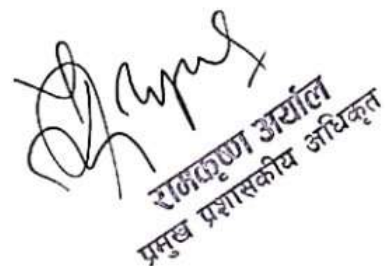 रामकृष्ण अर्याल
प्रमुख प्रशासकीय अधिकृत